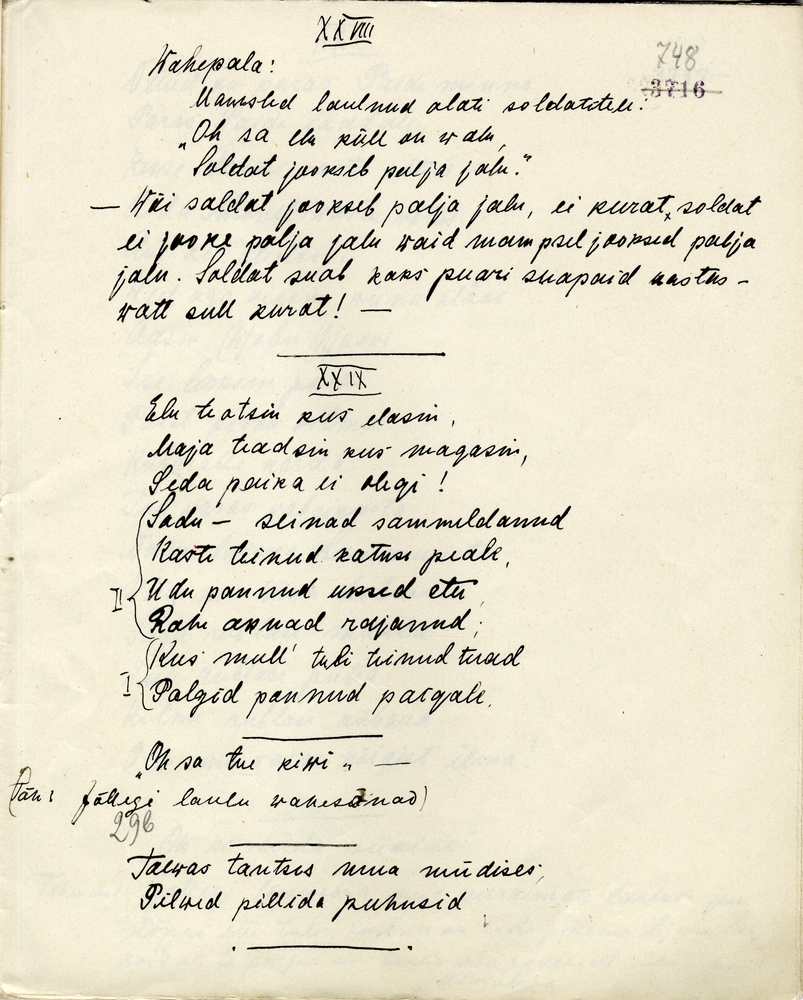 XXVIII
748
3716
Wahepala:
Mamslid laulnud alati soldatitele:
"Oh sa elu küll on walu,
Soldat jookseb palja jalu."
— Wõi soldat jookseb palja jalu, ei kurat, soldat
ei jookse palja jalu waid mampsel jooksed palja
jalu. Soldat saab kaks paari saapaid aastas –
watt sull kurat! —
XXIX
Elu teatsin kus elasin,
Maja teadsin kus magasin,
Seda paika ei olegi!
Sadu – seinad sammeldanud
Kaste teinud katuse peale,
II Udu pannud uksed ette,
Rahe aknad rajanud;
Kus mull' tuli teinud toad
I Palgid pannud paigale.
"Oh sa tue kiwi" —
(Päh: Jällegi laulu wahesõnad)
296
Taewas tantsis maa müdises,
Pilwed pillida puhusid